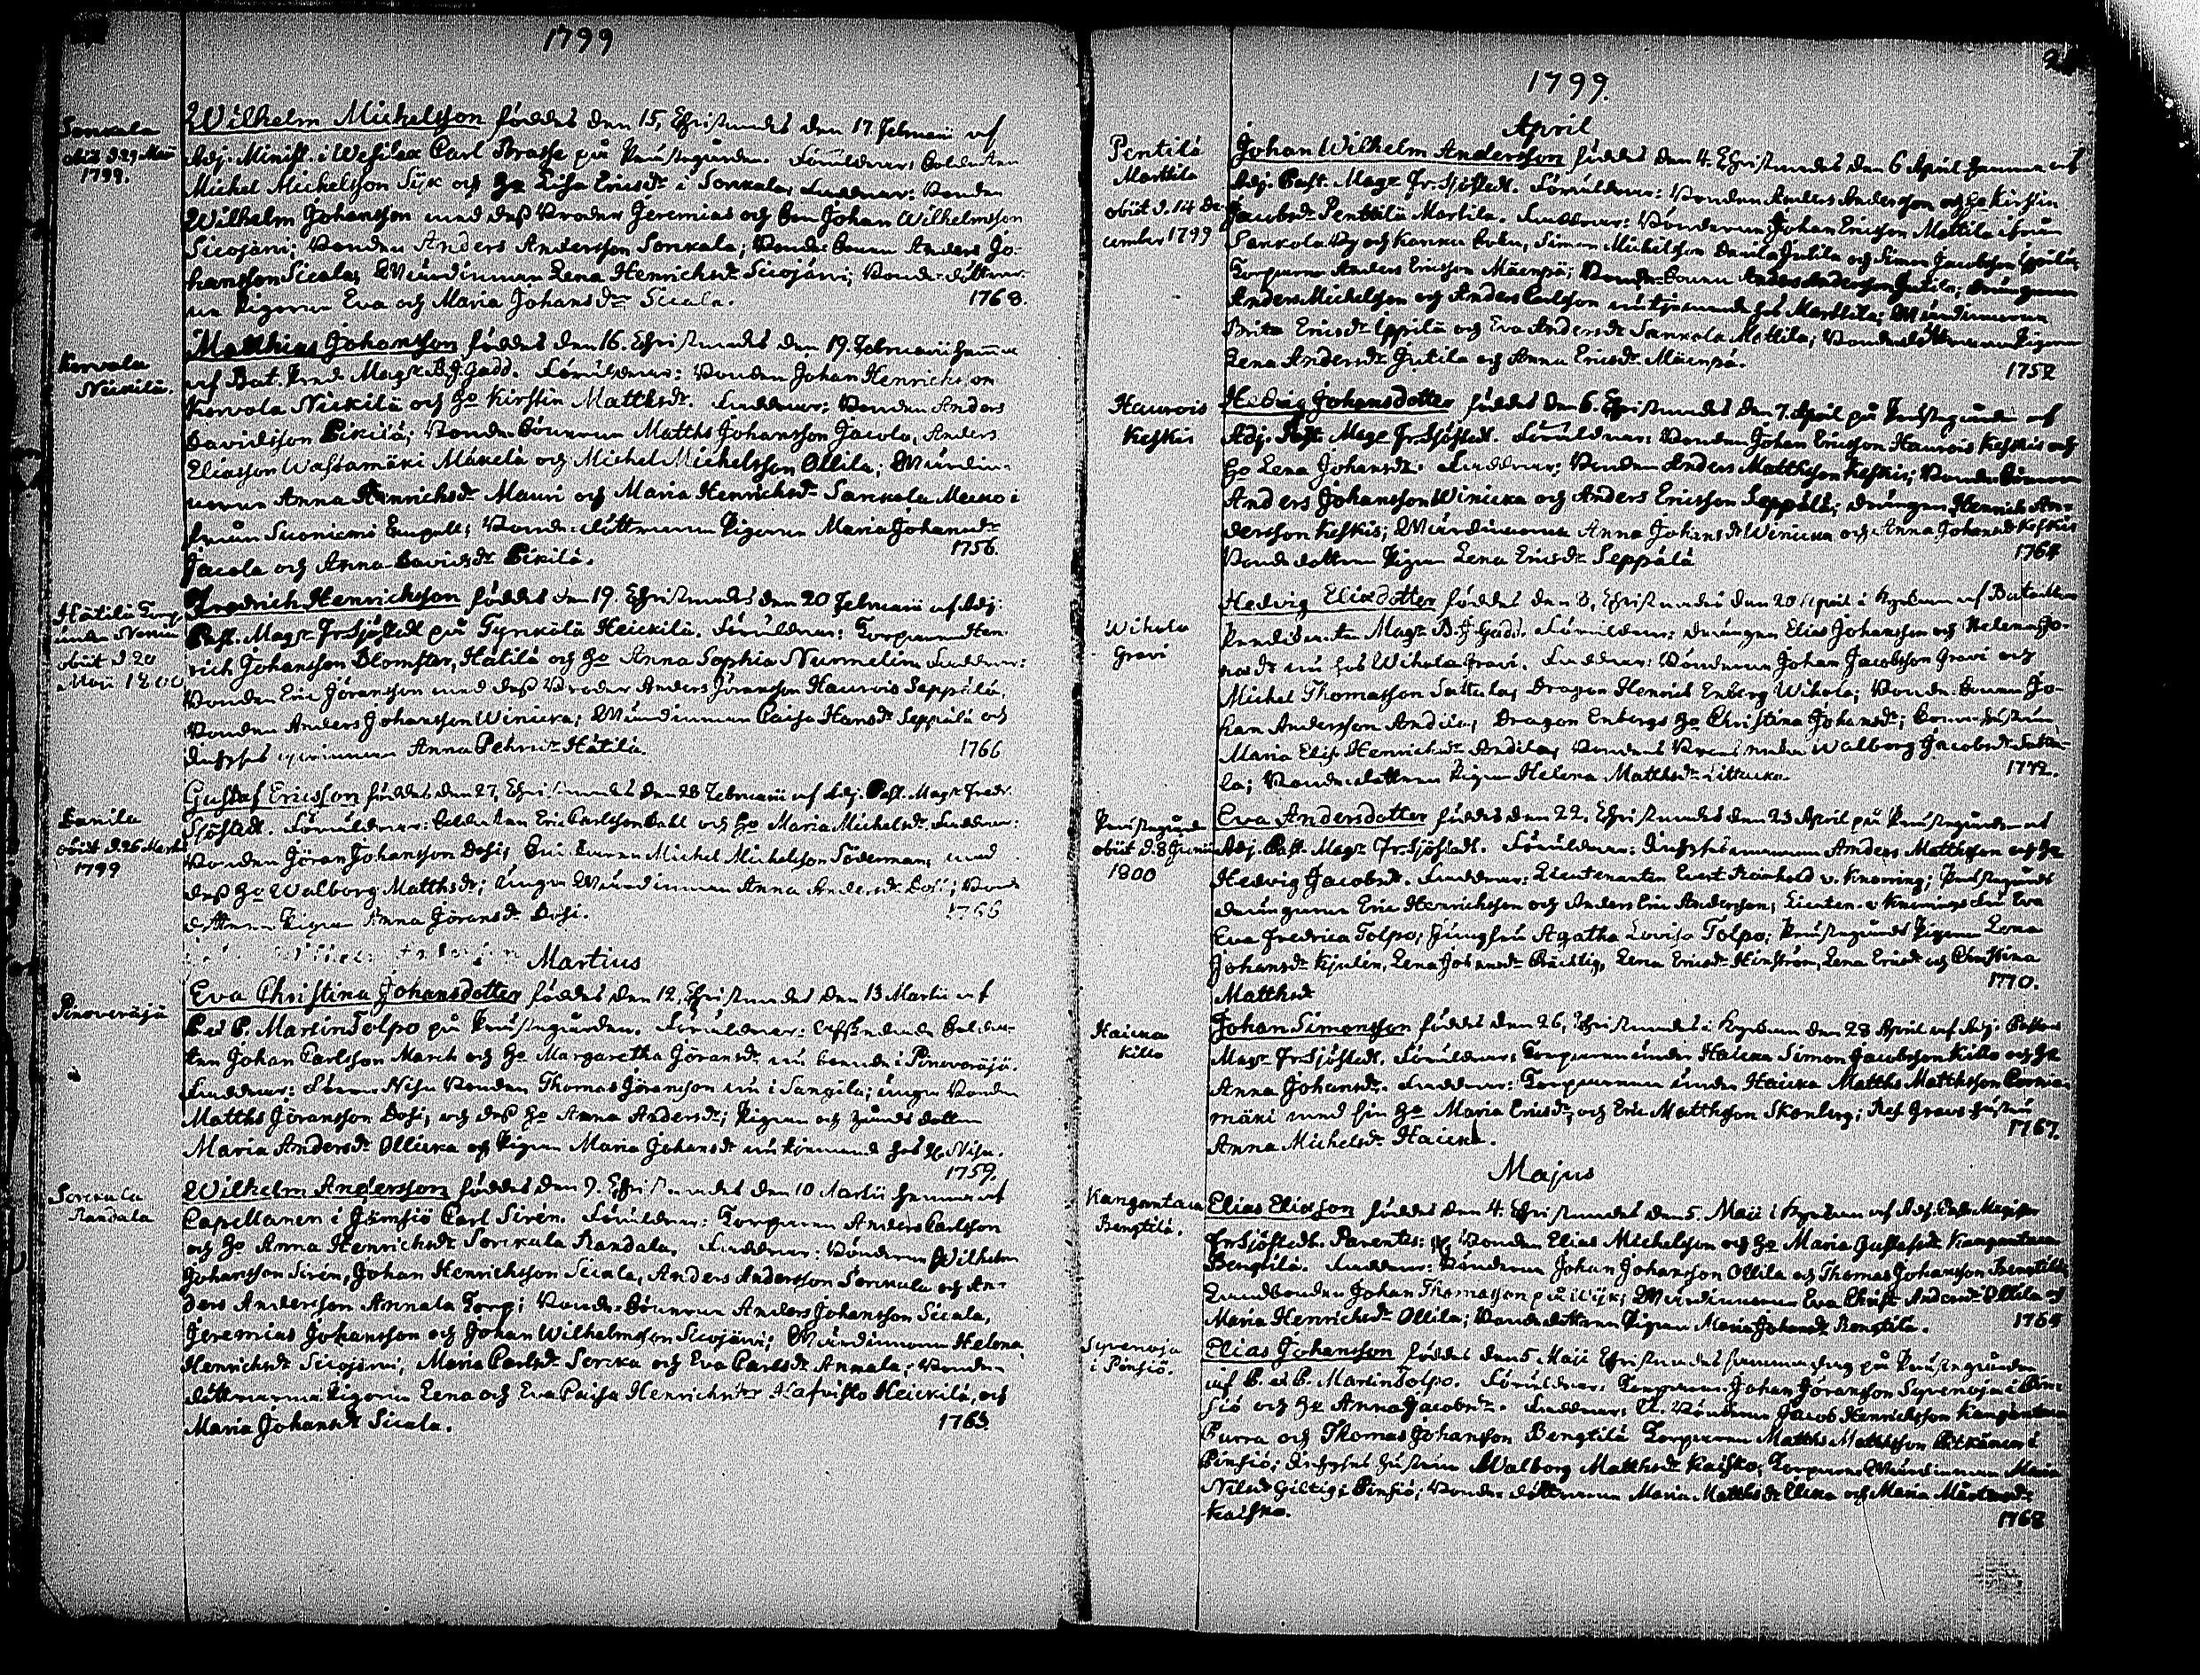 1799
Sorckala
obiit d 29 Maii
1799.
Wilhelm Michelsson föddes den 15, Christnades den 17 Februarii af
Adj. Minist. i Wesilax Carl Brasse på Prästegården. Föräldrar: Soldaten
Michel Michelsson Syk och Ho Lisa Ericsdr i Sorckala, Faddrar: Bonden
Wilhelm Johansson med dess Broder Jeremias och Son Johan Wilhelmsson
Sicojärvi; Bonden Anders Andersson Sorckala; Bonde Sonen Anders Jo-
hansson Sicala; Wärdinnan Lena Henrichsdr Sicojärvi; Bonde-döttrar-
na Pigorna Eva och Maria Johansdr Sicala.
1768.
Korvola
Nickilä.
Matthias Johansson föddes den 16. Christnades den 19. Februarii hemma
af Bat. Pred. Magr B. J. Gadd. Föräldrar: Bonden Johan Henrichsson
Korvola Nickilä och Ho Kirstin Matthsdr. Faddrar: Bonden Anders
Davidsson Pikilä; Bonde-Sönerna Matths Johansson Jacola, Anders
Eliasson Wastamäki Mäkelä och Michel Michelsson Ollila; Wärdin-
norna Anna Henrichsdr Mauri och Maria Henrichsdr Sarckola Mecko i
från Suoniemi Capell; Bonde-döttrarna Pigorna Maria Johansdr
Jacola och Anna Davidsdr Pikilä.
1756.
Hätilä Torp
under
obiit d 20
Maii 1800
Fredrich Henrichsson föddes den 19. Christnades den 20 Februarii af Adj.
Past. Magr Fr. Sjöstedt på Tyrckölä Heickilä. Föräldrar: Torparen Hen-
rich Johansson Blomster, Hätilä och Ho Anna Sophia Nurmelin Faddrar:
Bonden Eric Jöransson med dess Broder Anders Jöransson Haurois Seppälä,
Bonden Anders Johansson Winicka; Wärdinnan Caisa Hansdr Seppälä och
Anna Pehrsdr Hätilä.
1766
Danila
obiit d. 26 Martii
1799
Gustaf Ericsson föddes den 27, Christnades den 28 Februarii af Adj. Past. Magr Fredr.
Sjöstedt. Föräldrar: Soldaten Eric Carlsson Dahl och Ho Maria Michelsdr. Faddrar:
Bonden Jöran Johansson Dosi; Michel Michelsson Söderman, med
dess Ho Walborg Matthsdr; unga Wärdinnan Anna Andersdr Dosi; Bonde
dottren Pigan Anna Jöransdr Dosi.
1766
Martius
Pinoveräjä
Eva Christina Johansdotter föddes den 12, Christnades den 13 Martii af
P. et P. Martin Tolpo på Prästegården. Föräldrar: Afskedade Solda-
ten Johan Carlsson March och Ho Margaretha Jöransdr nu boende i Pinoveräjä.
Faddrar: Bonden Thomas Jöransson nu i Sangila; unga Bonden
Matths Jöransson Dosi, och dess Ho Anna Andersdr; Pigan och dotter
Maria Andersdr Ollicka och Pigan Maria Johansdr nu tienande hos
1759.
Sorckala
Randala
Wilhelm Andersson föddes den 9. Christnades den 10 Martii hemma af
Capellanen i Jämsiö Carl Sirén. Föräldrar: Torparen Anders Carlsson
och Ho Anna Henrichsdr Sorckala Randala. Faddrar: Bönderna Wilhelm
Johansson Sirén, Johan Henrichsson Sicala, Anders Andersson Sorckala och An-
ders Andersson Annala Torp; Bonde-Sönerna Anders Johansson Sicala,
Jeremias Johansson och Johan Wilhelmsson Sicojärvi; Wärdinnorna Helena
Henrichsdr Sicojärvi, Maria Carlsdr Sorcka och Eva Carlsdr Annala; Bonde-
döttrarna Pigorna Lena och Eva Caisa Henrichsdr Hafvisto Heickilä, och
Maria Johansdr Sicala.
1763.
1799.
April
Pentilä
Marttila
obiit d. 14 De-
cember 1799
Johan Wilhelm Andersson föddes den 4. Christnades den 6 April hemma af
Adj. Past. Magr Fr. Sjöstedt. Föräldrar: Bonden Anders Andersson och Ho Kirstin
Jacobsdr Penttilä Martila. Faddrar: Bönderna Johan Ericsson Mattila ifrån
Sarkola By och Simon Michelsson Danila Jutila och Simon Jacobsson Eppilä;
Torparen Anders Ericsson Mäenpä; Bonde-Sonen Anders Andersson Jutila; Drängarna
Anders Michelsson och Anders Carlsson nu tjenande hos Marttila; Wärdinnorna
Brita Ericsdr Eppilä och Eva Andersdr Sarckola Mattila; Bondedöttrarna Pigorna
Lena Andersdr Jutila och Anna Ericsdr Mäenpä.
1752
Haurois
Keskis
Hedvig Johansdotter föddes den 6. Christnades den 7. April på Prästegården af
Adj. Past. Magr Fr. Sjöstedt. Föräldrar: Bonden Johan Ericsson Haurois Keskis och
Ho Lena Johansdr. Faddrar: Bonden Anders Matthsson Keskis; Bonde-Sönerna
Anders Johansson Winicka och Anders Ericsson Seppälä; Drängen Henrich An-
dersson Keskis; Wärdinnorna Anna Johansdr Winicka och Anna Johansdr Keskis
Bonde dottren Pigan Lena Ericsdr Seppälä
1764
Wihola
Gravi
Hedvig Eliædotter föddes den 8, Christnades den 20 April i Kyrkan af Bataillons
Predikanten Magr B. J. Gadd. Föräldrar: Drängen Elias Johansson och Helena Jo-
hansdr nu hos Wihola Gravi. Faddrar: Bönderna Johan Jacobsson Gravi och
Michel Thomasson Sattola; Dragon Henrich Enberg Wihola; Bonde-Sonen Jo-
han Andersson Andila; Dragon Enbergs Ho Christina Johansdr;
Maria Elis. Henrichsdr Andila; Walborg Jacobsdr Satto-
la; Bondedottren Pigan Helena Matthsdr Littucka.
1772.
Prästegården
obiit d. 8 Junii
1800
Eva Andersdotter föddes den 22, Christnades den 23 April på Prästegården af
Adj. Past. Magr Fr. Sjöstedt. Föräldrar: Anders Matthsson och Ho
Hedvig Jacobsdr. Faddrar: Lieutenanten Evert Reinhold v. Knorring; Prästegårds
drängarna Eric Henrichsson och Anders Eric Andersson, Lieuten. v. Knorrings Fru Eva
Eva Fredrica Tolpo; Jungfru Agatha Lovisa Tolpo; Prästegårds Pigorna Lena
Johansdr Kjulén, Lena Johansdr Lena Ericsdr Hinström, Lena Ericsdr och Christina
Matthsdr
1770.
Haicka
Killo
Johan Simonsson föddes den 26, Christnades i Kyrkan den 28 April af Adj. Pastor
Magr Fr. Sjöstedt. Föräldrar: Torparen under Haicka Simon Jacobsson Killo och Ho
Anna Johansdr. Faddrar: Torparena under Haicka Matths Matthsson
mäki med sin Ho Maria Ericsdr, och Eric Matthsson Skonberg; hustru
Anna Michelsdr Haicka.
1767.
Majus
Kangantaca
Bengtilä.
Elias Eliæson föddes den 4. Christnades den 5. Maii i Kyrkan af Adj. Past. Magister
Fr. Sjöstedt. Parentes: Bonden Elias Michelsson och Ho Maria Gustafsdr Kangantaca
Bengtilä. Faddrar: Bönderna Johan Johansson Ollila och Thomas Johansson Bengtilä
Landbonden Johan Thomasson på Wijk; Wärdinnorna Eva Christ. Andersdr Ollila och
Maria Henrichsdr Ollila; Bondedottren Pigan Maria Johansdr Bengtilä.
1764
Syrenoja
i Pinsiö.
Elias Johansson föddes den 5 Maii Christnades samma dag på Prästegården
af P. et P. Martin Tolpo. Föräldrar: Torparen Johan Jöransson Syrenoja i Pin-
siö och Ho Anna Jacobsdr. Faddrar: Bönderna Jacob Henrichsson Kangantaca
Purra och Thomas Johansson Bengtilä Torparen Matths Matthsson Pitkänen i
Pinsiö; hustru Walborg Matthsdr Kaisko; Torpare Wärdinnan Maria
Nilsdr Giltig i Pinsiö; Bonde döttrarna Maria Matthsdr Ulcka och Maria Mårtensdr
Kaisko.
1768